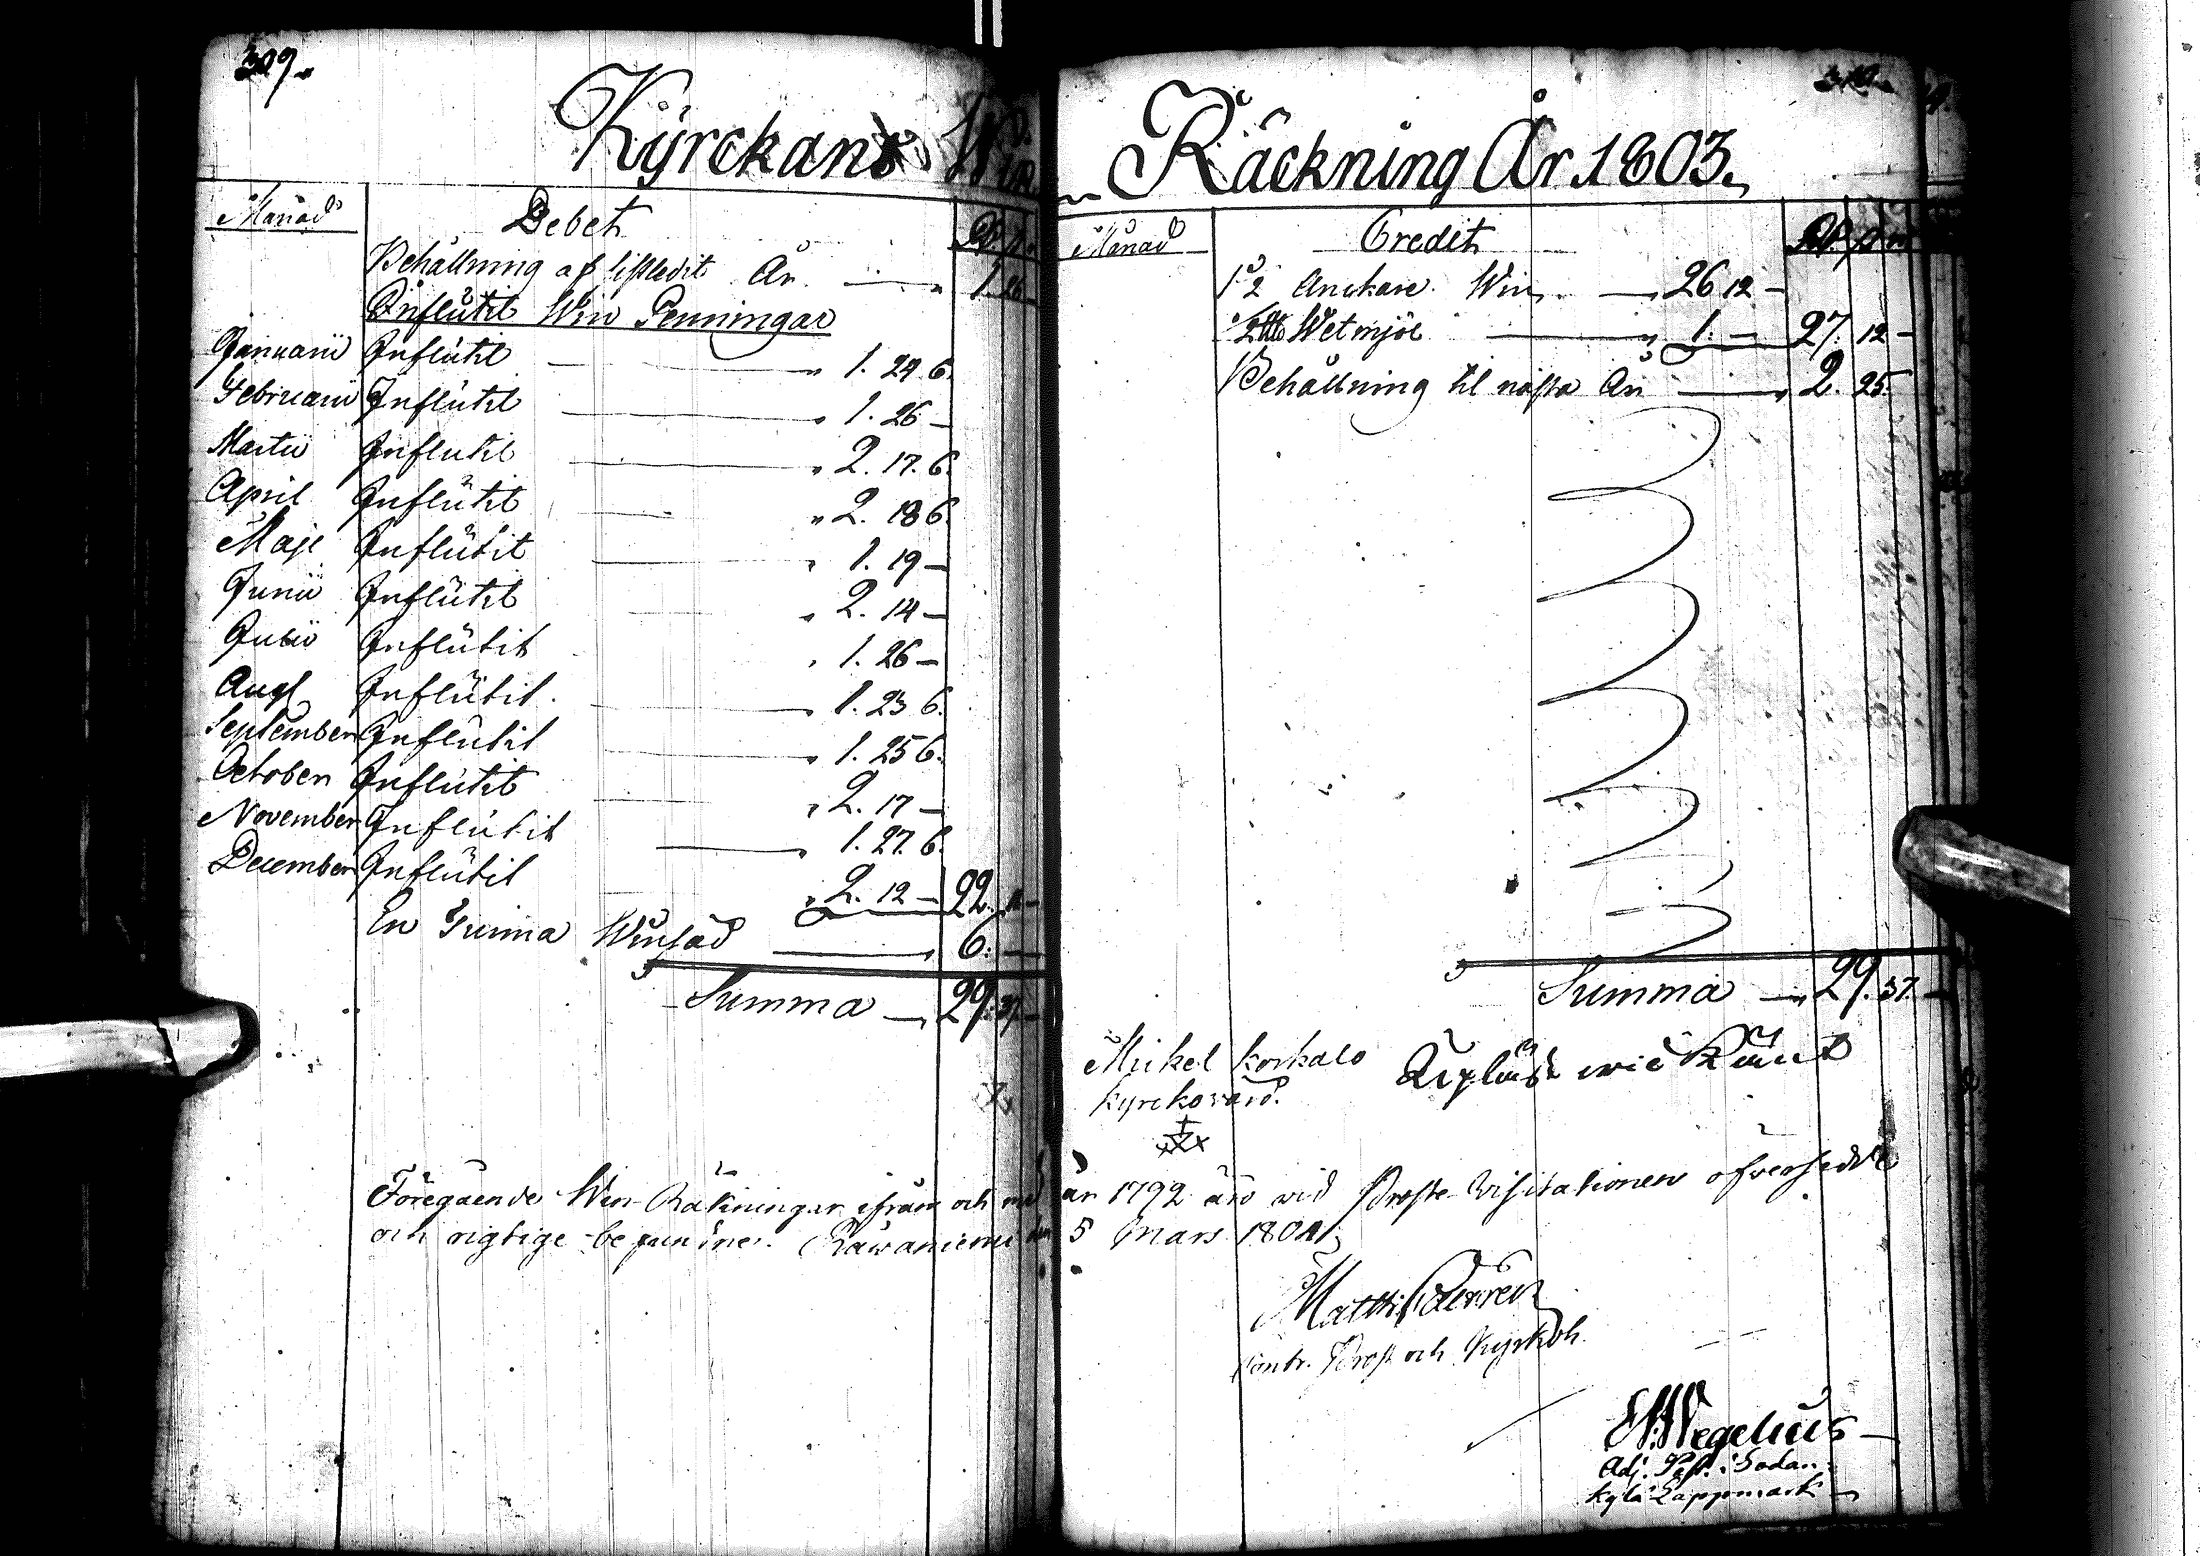 309.
Kyrckans Win
Månad Debet Rd.
Behållning af sistledit År 1. 26
Influtit Win Penningar
Januarii Influtit 1. 24. 6.
Februarii Influtit 1. 26 –
Martii Influtit 2. 17. 6.
April Influtit 2. 18 6.
Maji Influtit 1. 19 –
Junii Influtit 2. 14 –
Julii Influtit 1. 26 –
Aug Influtit. 1. 23 6.
September Influtit 1. 25 6.
October Influtit 2. 17 –
November Influtit 1. 27. 6.
December Influtit 2. 12 – 22. 11 –
En Tunna Winsäd 6. –
Summa 29. 37 –
Föregående Win Räkningar ifrån och med
och rigtige befundne. Råwaniemi den
310.
Räckning År 1803.
Månad Credit Rd.
12 Anckare Win 26 12 –
Wetmjöl 1. – 27. 12 –
Behållning til nästa År 2. 25.
Summa 29. 37. –
Mickel Korkalo
Kyrckovärd.
år 1792 äro wid Proste Visitationen öfversedde
5 Mars 1804.
Matth.
Contr. Prost och Kyrkoh.
Wegelius
Adj. Past. i Sodan
kylä Lappmark